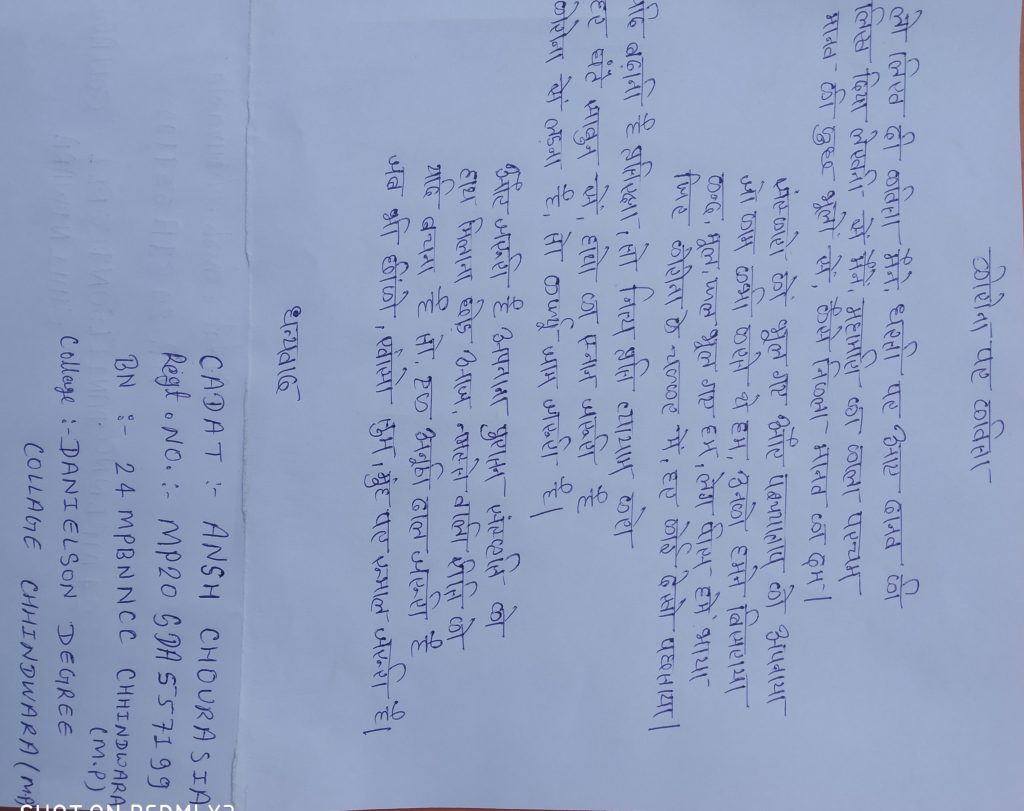 कोरोना पर कविता
लो लिख दी कविता मैंने धरती पर आए दानव की
लिख दिया लेखनी से मैंने महामारी का काला पन्ना
मानव की कुछ भूलों से, कैसे निकला मानव का दम।
संस्कारों को भूल गए और पाश्चात्य को अपनाया
जो काम कभी करते थे हम, उनको हमने बिसराया
कन्द, मूल, फल भूल गए हम, मांस हमें भाया
फिर कोरोना के चक्कर में, हर कोई देखो पछताया।
यदि बढ़ानी है प्रतिरक्षा, तो नित्य प्रति व्यायाम करो
हर घंटे साबुन से, हाथों का धोना जरूरी है
कोरोना से लड़ना है, तो कर्फ्यू आज जरूरी है।
और जरूरी है अपनाना पुरातन संस्कृति को
हाथ मिलाना छोड़ आज, नमस्ते वाली रीति को
यदि बचना है तो, हल्दी वाला जरूरी है
जब भी छींको, खांसो तुम, मुंह पर रूमाल जरूरी है।
धन्यवाद
CADAT :- ANSH CHOURASIA
Regt. NO. :- MP20SDA557199
BN :- 24 MPBNNCC CHHINDWARA
(M.P)
Collage :- DANIELSON DEGREE
COLLAGE CHHINDWARA (MP
SHOT ON REDMI Y2